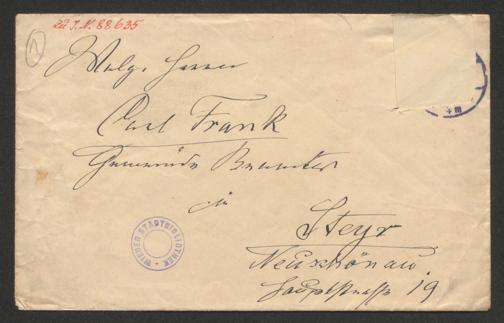 zu I.N. 88635
Wolg. Herrn
Carl Frank
Gemeinde Beamter
in
Steyr
Neuschönau
Hauptstrasse 19
WIENER STADTBIBLIOTHEK